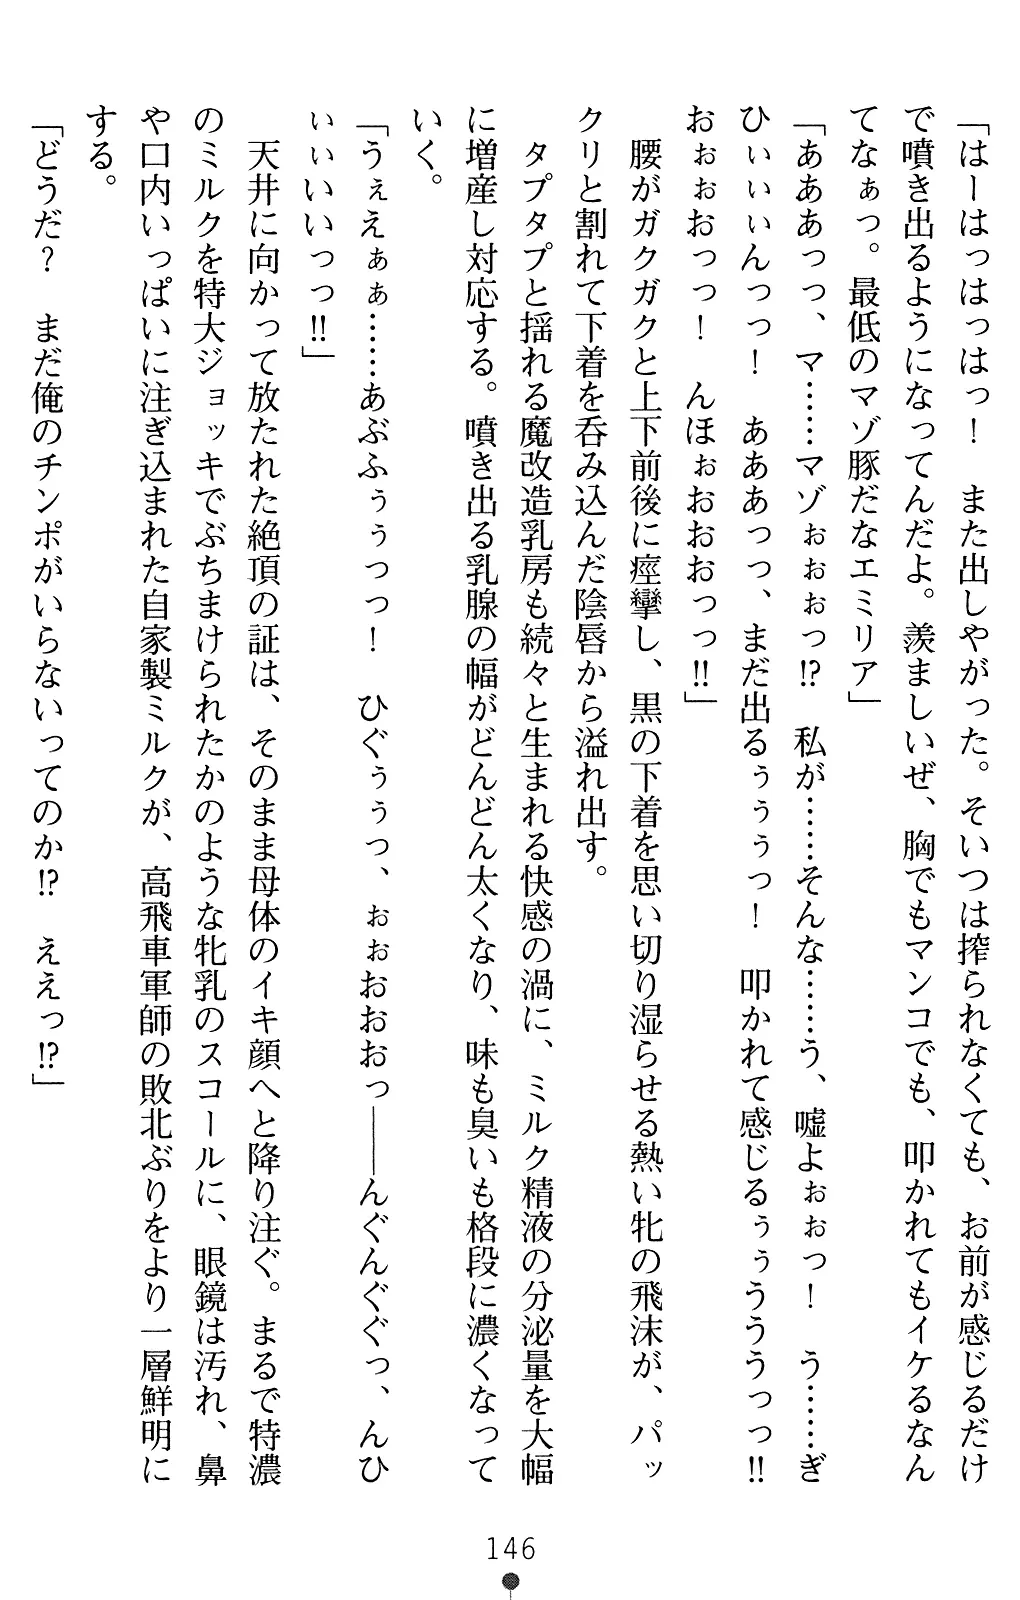 「はーはっはっはっ！　また出しやがった。そいつは搾られなくても、お前が感じるだけ
で噴き出るようになってんだよ。羨ましいぜ、胸でもマンコでも、叩かれてもイケるなん
てなぁっ。最低のマゾ豚だなエミリア」
「あああっっ、マ……マゾぉぉぉっ!?　私が……そんな……う、嘘よぉぉっ！　う……ぎ
ひぃぃぃんっっ！　あああっっ、まだ出るぅぅぅっ！　叩かれて感じるぅぅうううっっ!!
おぉぉおっっ！　んほぉおおおっっ!!」
　腰がガクガクと上下前後に痙攣し、黒の下着を思い切り湿らせる熱い牝の飛沫が、パッ
クリと割れて下着を呑み込んだ陰唇から溢れ出す。
　タプタプと揺れる魔改造乳房も続々と生まれる快感の渦に、ミルク精液の分泌量を大幅
に増産し対応する。噴き出る乳腺の幅がどんどん太くなり、味も臭いも格段に濃くなって
いく。
「うぇえぁぁ……あぶふぅぅっっ！　ひぐぅぅっ、ぉぉおおおっ――んぐんぐぐっ、んひ
ぃぃいいっっ!!」
　天井に向かって放たれた絶頂の証は、そのまま母体のイキ顔へと降り注ぐ。まるで特濃
のミルクを特大ジョッキでぶちまけられたかのような牝乳のスコールに、眼鏡は汚れ、鼻
や口内いっぱいに注ぎ込まれた自家製ミルクが、高飛車軍師の敗北ぶりをより一層鮮明に
する。
「どうだ？　まだ俺のチンポがいらないってのか!?　ええっ!?」
146